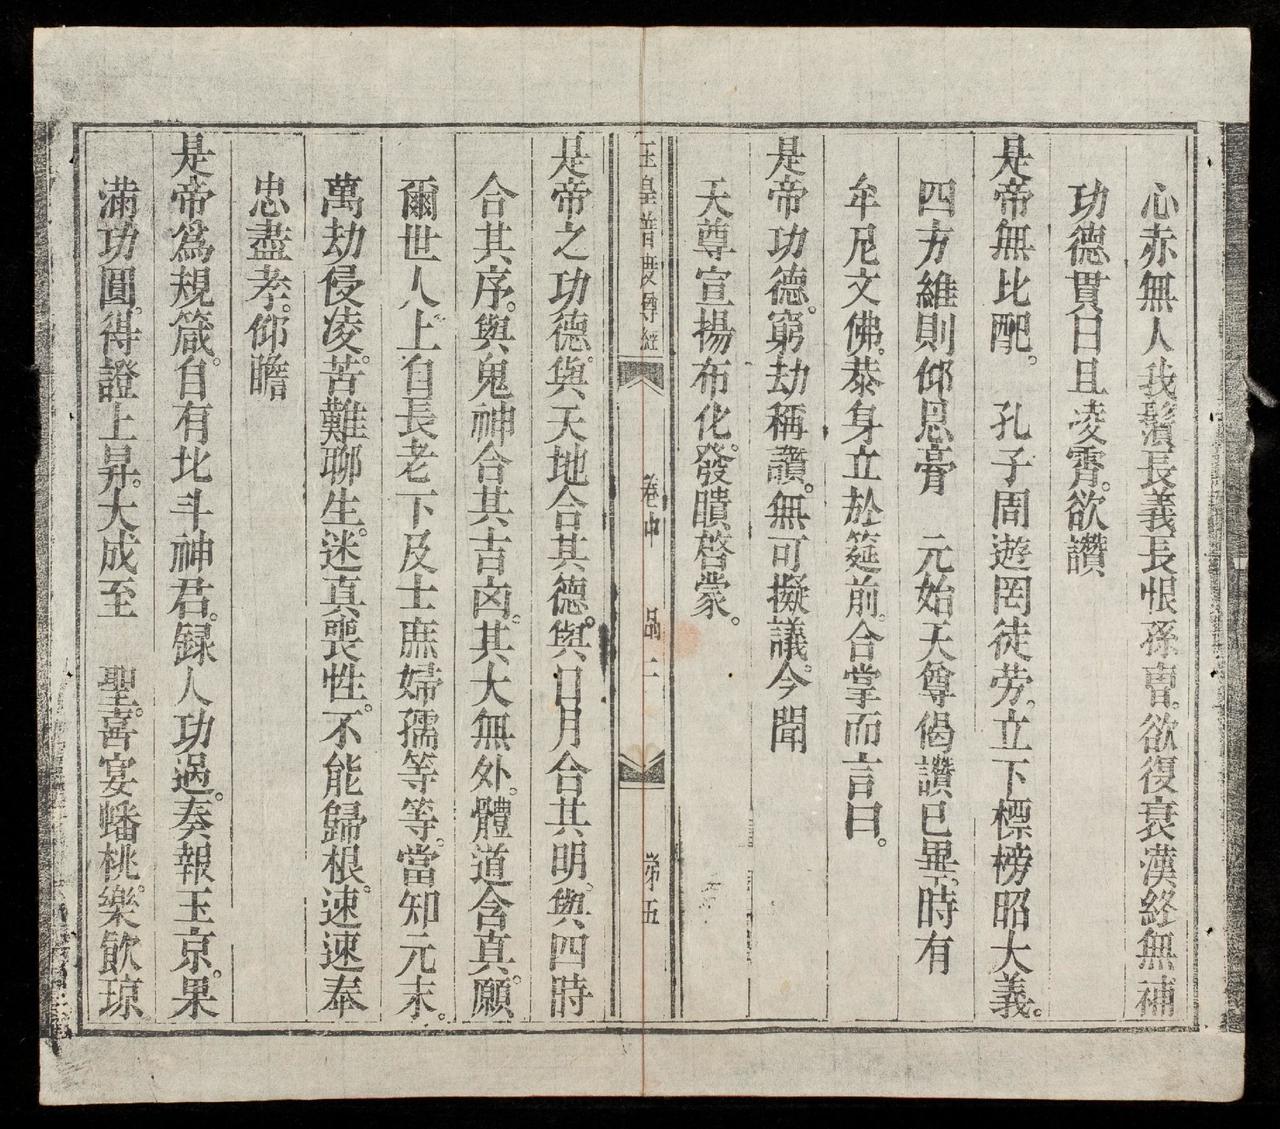 心赤無人我鬚長義長恨孫曹。欲復衰漢終無補
功德貫日且凌霄。欲讚
是帝無比配。 孔子周遊罔徒劳。立下標榜昭大義。
四方維則仰恩膏 元始天尊偈讚已畢。時有
牟尼文佛。恭身立於筵前。合掌而言曰。
是帝功德。窮劫稱讚。無可擬議。今聞
天尊宣揚布化。發聵啓蒙。
玉皇普度尊經 卷中 品二 第五
是帝之功德。與天地合其德。與日月合其明。與四時
合其序。與鬼神合其吉凶。其大無外。體道含真。願
爾世人。上自長老。下及士庶婦孺等等。當知元末。
萬劫侵凌。苦難聊生。迷真喪性。不能歸根。速速奉
忠盡孝。仰瞻
是帝爲規箴。自有北斗神君。録人功過。奏報玉京。果
滿功圓。得證上昇。大成至 聖。喜宴蟠桃。樂飲瓊